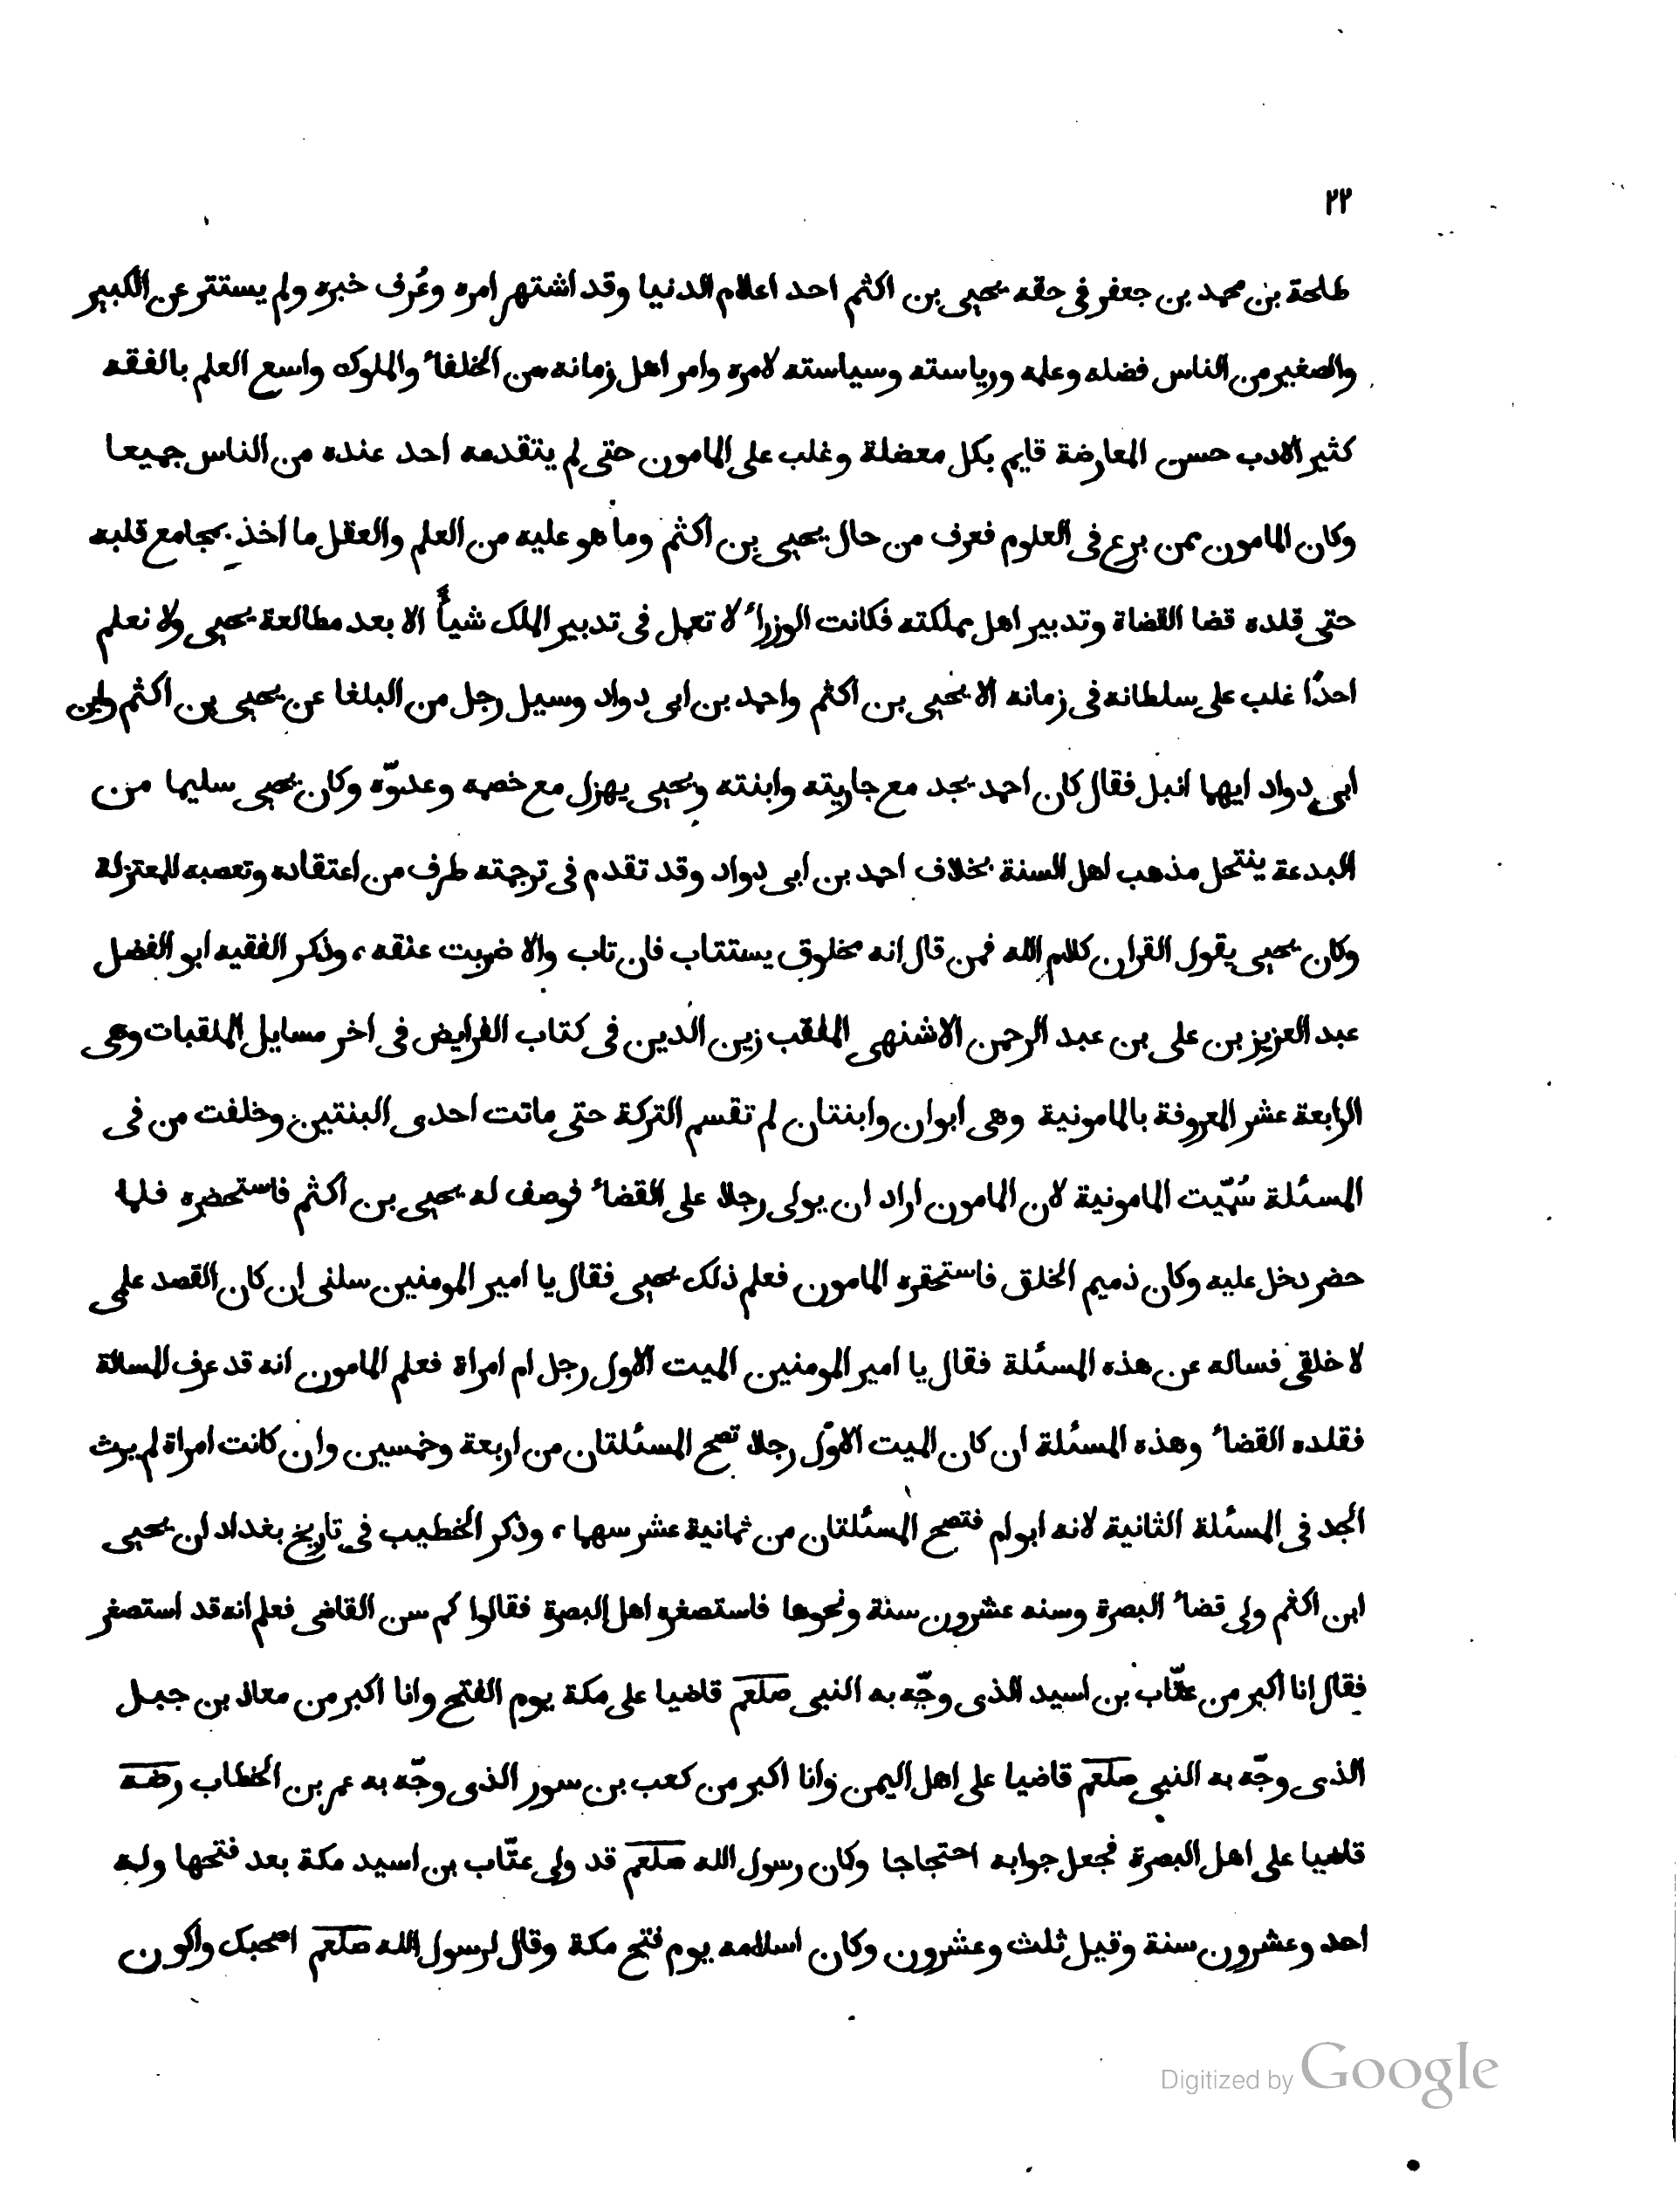 ٢٢
طلحة بن محمد بن جعفر فى حقه يحيى بن اكثم احد اعلام الدنيا وقد اشتهر امره وعُرف خبره ولم يستتر عن الكبير
والصغير من الناس فضله وعلمه ورياسته وسياسته لامره وامر اهل زمانه من الخلفاء والملوك واسع العلم بالفقه
كثير الادب حسن المعارضة قايم بكل معضلة وغلب على المامون حتى لم يتقدمه احد عنده من الناس جميعا
وكان المامون ممن برع فى العلوم فعرف من حال يحيى بن اكثم وما هو عليه من العلم والعقل ما اخذ بمجامع قلبه
حتى قلده قضا القضاة وتدبير اهل مملكته فكانت الوزراء لا تعمل فى تدبير الملك شيأً الا بعد مطالعة يحيى ولا نعلم
احدًا غلب على سلطانه فى زمانه الا يحيى بن اكثم واحمد بن ابى دواد وسيل رجل من البلغا عن يحيى بن اكثم وابن
ابى دواد ايهما انبل فقال كان احمد يجد مع جاريته وابنته ويحيى يهزل مع خصمه وعدوّه وكان يحيى سليما من
البدعة ينتحل مذهب اهل السنة بخلاف احمد بن ابى دواد وقد تقدم فى ترجمته طرف من اعتقاده وتعصبه للمعتزلة
وكان يحيى يقول القران كلام الله فمن قال انه مخلوق يستتاب فان تاب والا ضربت عنقه، وذكر الفقيه ابو الفضل
عبد العزيز بن على بن عبد الرحمن الاشنهى الملقب زين الدين فى كتاب الفرايض فى اخر مسايل الملقبات وهى
الرابعة عشر المعروفة بالمامونية وهى ابوان وابنتان لم تقسم التركة حتى ماتت احدى البنتين وخلفت من فى
المسئلة سُمّيت المامونية لان المامون اراد ان يولى رجلا على القضاء فوصف له يحيى بن اكثم فاستحضره فلما
حضر دخل عليه وكان ذميم الخلق فاستحقره المامون فعلم ذلك يحيى فقال يا امير المومنين سلنى ان كان القصد علمى
لا خلقى فساله عن هذه المسئلة فقال يا امير المومنين الميت الاول رجل ام امراة فعلم المامون انه قد عرف المسالة
فقلده القضاء وهذه المسئلة ان كان الميت الاوّل رجلا تصح المسئلتان من اربعة وخمسين وان كانت امراة لم يرث
الجد فى المسئلة الثانية لانه ابو ام فتصح المسئلتان من ثمانية عشر سهما، وذكر الخطيب فى تاريخ بغداد ان يحيى
ابن اكثم ولى قضاء البصرة وسنه عشرون سنة ونحوها فاستصغره اهل البصرة فقالوا كم سن القاضى فعلم انه قد استصغر
فقال انا اكبر من عتّاب بن اسيد الذى وجّه به النبى صلعم قاضيا على مكة يوم الفتح وانا اكبر من معاذ بن جبل
الذى وجّه به النبى صلعم قاضيا على اهل اليمن وانا اكبر من كعب بن سور الذى وجّه به عمر بن الخطاب رضه
قاضيا على اهل البصرة فجعل جوابه احتجاجا وكان رسول الله صلعم قد ولى عتّاب بن اسيد مكة بعد فتحها وله
احد وعشرون سنة وقيل ثلث وعشرون وكان اسلامه يوم فتح مكة وقال لرسول الله صلعم اصحبك واكون
Digitized by Google